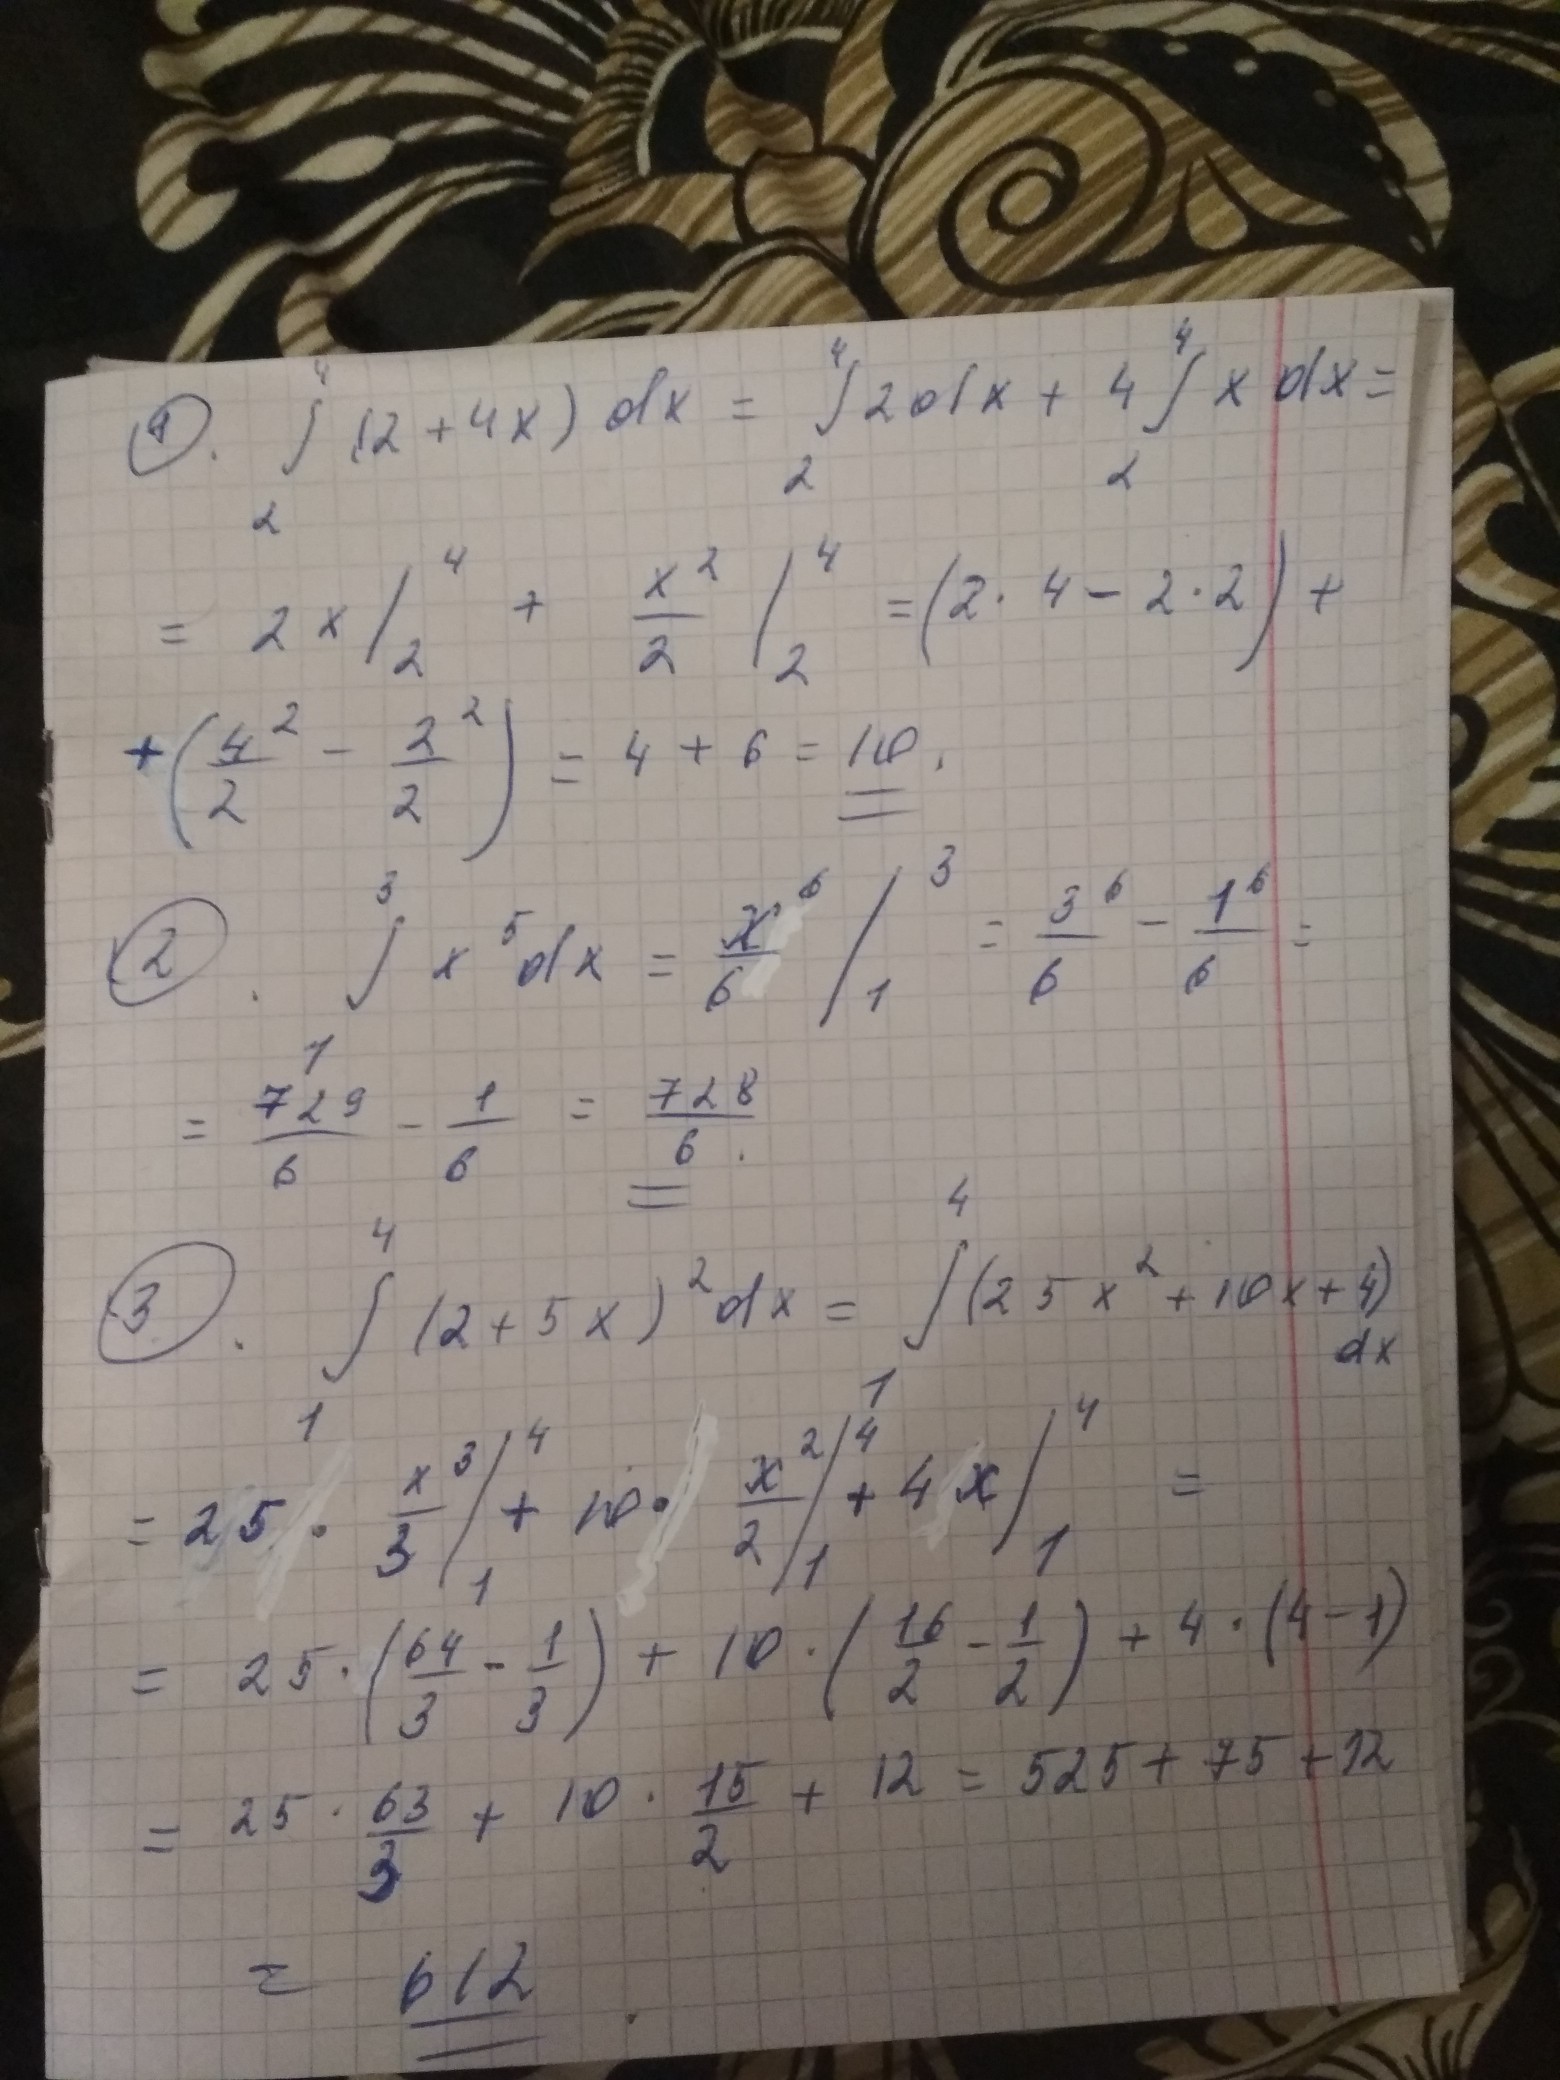 ①. ∫₂⁴ (2 + 4x) dx = ∫₂⁴ 2 dx + 4 ∫₂⁴ x dx =
= 2x |₂⁴ + x²/2 |₂⁴ = (2 · 4 − 2 · 2) +
+ (4²/2 − 2²/2) = 4 + 6 = 10.
②. ∫₁³ x⁵ dx = x⁶/6 |₁³ = 3⁶/6 − 1⁶/6 =
= 729/6 − 1/6 = 728/6.
③. ∫₁⁴ (2 + 5x)² dx = ∫₁⁴ (25x² + 10x + 4) dx
= 25 · x³/3 |₁⁴ + 10 · x²/2 |₁⁴ + 4x |₁⁴ =
= 25 · (64/3 − 1/3) + 10 · (16/2 − 1/2) + 4 · (4 − 1)
= 25 · 63/3 + 10 · 15/2 + 12 = 525 + 75 + 12
= 612.